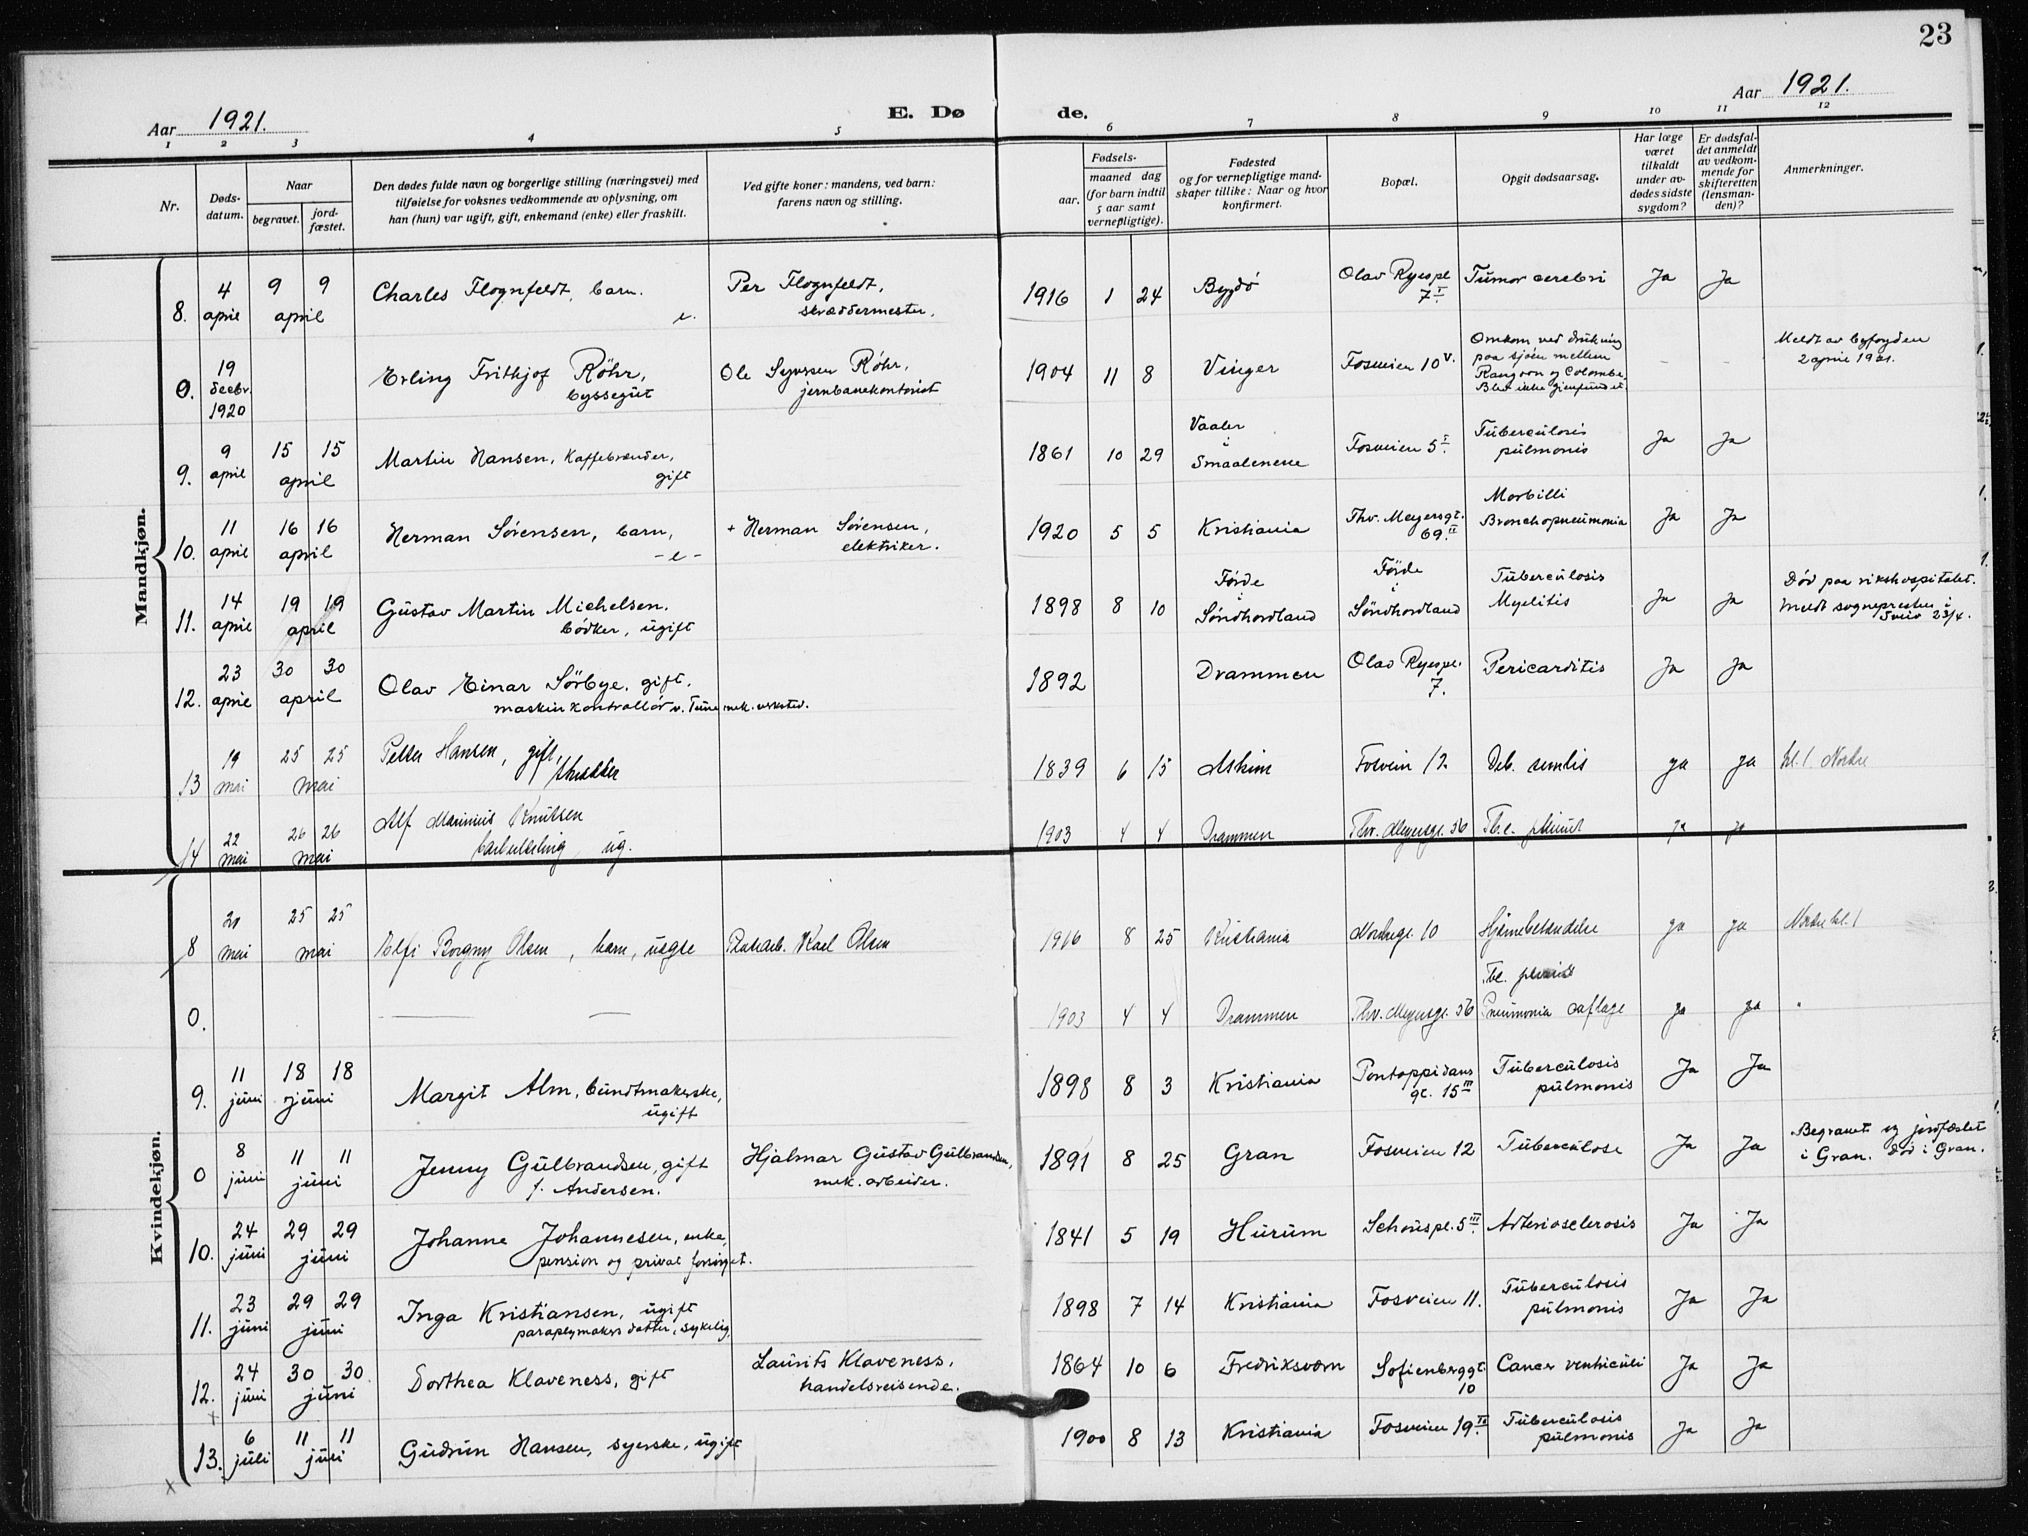 23
Aar 1921.
E. Dø de.
Aar 1921.
1 2 3 4 5 6 7 8 9 10 11 12
Nr.
Døds-
datum.
Naar
begravet.
jord-
fæstet.
Den dødes fulde navn og borgerlige stilling (næringsvei) med
tilføielse for voksnes vedkommende av oplysning, om
han (hun) var ugift, gift, enkemand (enke) eller fraskilt.
Ved gifte koner: mandens, ved barn:
farens navn og stilling.
Fødsels-
aar.
maaned dag
(for barn indtil
5 aar samt
vernepligtige).
Fødested
og for vernepligtige mand-
skaper tillike: Naar og hvor
konfirmert.
Bopæl.
Opgit dødsaarsag.
Har læge
været
tilkaldt
under av-
dødes sidste
sygdom?
Er dødsfal-
det anmeldt
av vedkom-
mende for
skifteretten
(lensman-
den)?
Anmerkninger.
Mandkjøn.
8. 4 april 9 9 april Charles Flognfeldt, barn. e. Per Flognfeldt, skræddermester. 1916 1 24 Bygdö Olav Ryespl. 7 I. Tumor cerebri Ja Ja
0. 19 decbr. 1920 Erling Frithjof Röhr, byssegut Ole Syvrsen Röhr, jernbanekontorist 1904 11 8 Vinger Fosveien 10 V. Omkom ved drukning paa sjöen mellem Rangoon og Colombo. Blev ikke gjenfundet. – – Meldt av byfogden 2 april 1921.
9. 9 april 15 15 april Martin Hansen, Kaffebrænder, gift 1861 10 29 Vaaler i Smaalenene Fosveien 5 I. Tuberculosis pulmonis Ja Ja
10. 11 april 16 16 april Herman Sörensen, barn, -e- + Herman Sörensen, elektriker. 1920 5 5 Kristiania Thv. Meyersgt. 69 II Morbilli Bronchopneumonia Ja Ja
11. 14 april 19 19 april Gustav Martin Michelsen. bödker, ugift 1898 8 10 Förde i Söndhordland Förde i Söndhordland Tuberculosis Myelitis Ja Ja Död paa rikshospitalet. Meldt sognepresten i Sveio 23/4.
12. 23 april 30 30 april Olav Einar Sörbye, gift. maskinkontrollör v. mek. verksted. 1892 Drammen Olav Ryespl. 7. Pericarditis Ja Ja
13 19 mai 25 25 mai Petter Hansen, gift, skrædder 1839 6 15 Askim Fosvein 12 Deb. senilis ja ja kl. 1 Nordre
14 22 mai 26 26 mai Alf Marinius Knutsen ug. 1903 4 4 Drammen Thv. Meyersgt. 56 Tbc. ja ja
Kvindekjøn.
8 mai 25 25 mai Elfi Borgny Olsen, barn, uegte Karl Olsen 1916 8 25 Kristiania 10 Hjernebetændelse ja ja Nordre kl. 1
0. — — 1903 4 4 Drammen Thv. Meyersgt. 56 Tbc. Pneumonia ja ja "
9. 11 juni 18 18 juni Margit Alm, bundtmakerske, ugift 1898 8 3 Kristiania Pontoppidans gt. 15 III Tuberculosis pulmonis Ja Ja
0 8 juni 11 11 juni Jenny Gulbrandsen, gift f. Andersen. Hjalmar Gustav Gulbrandsen, mek. arbeider. 1891 8 25 Gran Fosveien 12 Tuberculose Ja Ja Begravet og jordfæstet i Gran. Död i Gran.
10. 24 juni 29 29 juni Johanne Johannesen, enke, pension og privat forsörget. 1841 5 19 Hurum Schouspl. 5 III. Arteriosclerosis Ja Ja
11. 23 juni 29 29 juni Inga Kristiansen, ugift paraplymakers datter, sykelig, 1898 7 14 Kristiania Fosveien 11. Tuberculosis pulmonis Ja Ja
12. 24 juni 30 30 juni Dorthea Klaveness, gift Laurits Klaveness, handelsreisende. 1864 10 6 Fredriksværn Sofienberggt. 10 Cancer ventriculi Ja Ja
13. 6 juli 11 11 juli Gudrun Hansen, syerske, ugift 1900 8 13 Kristiania Fosveien 19 Tuberculosis pulmonis Ja Ja